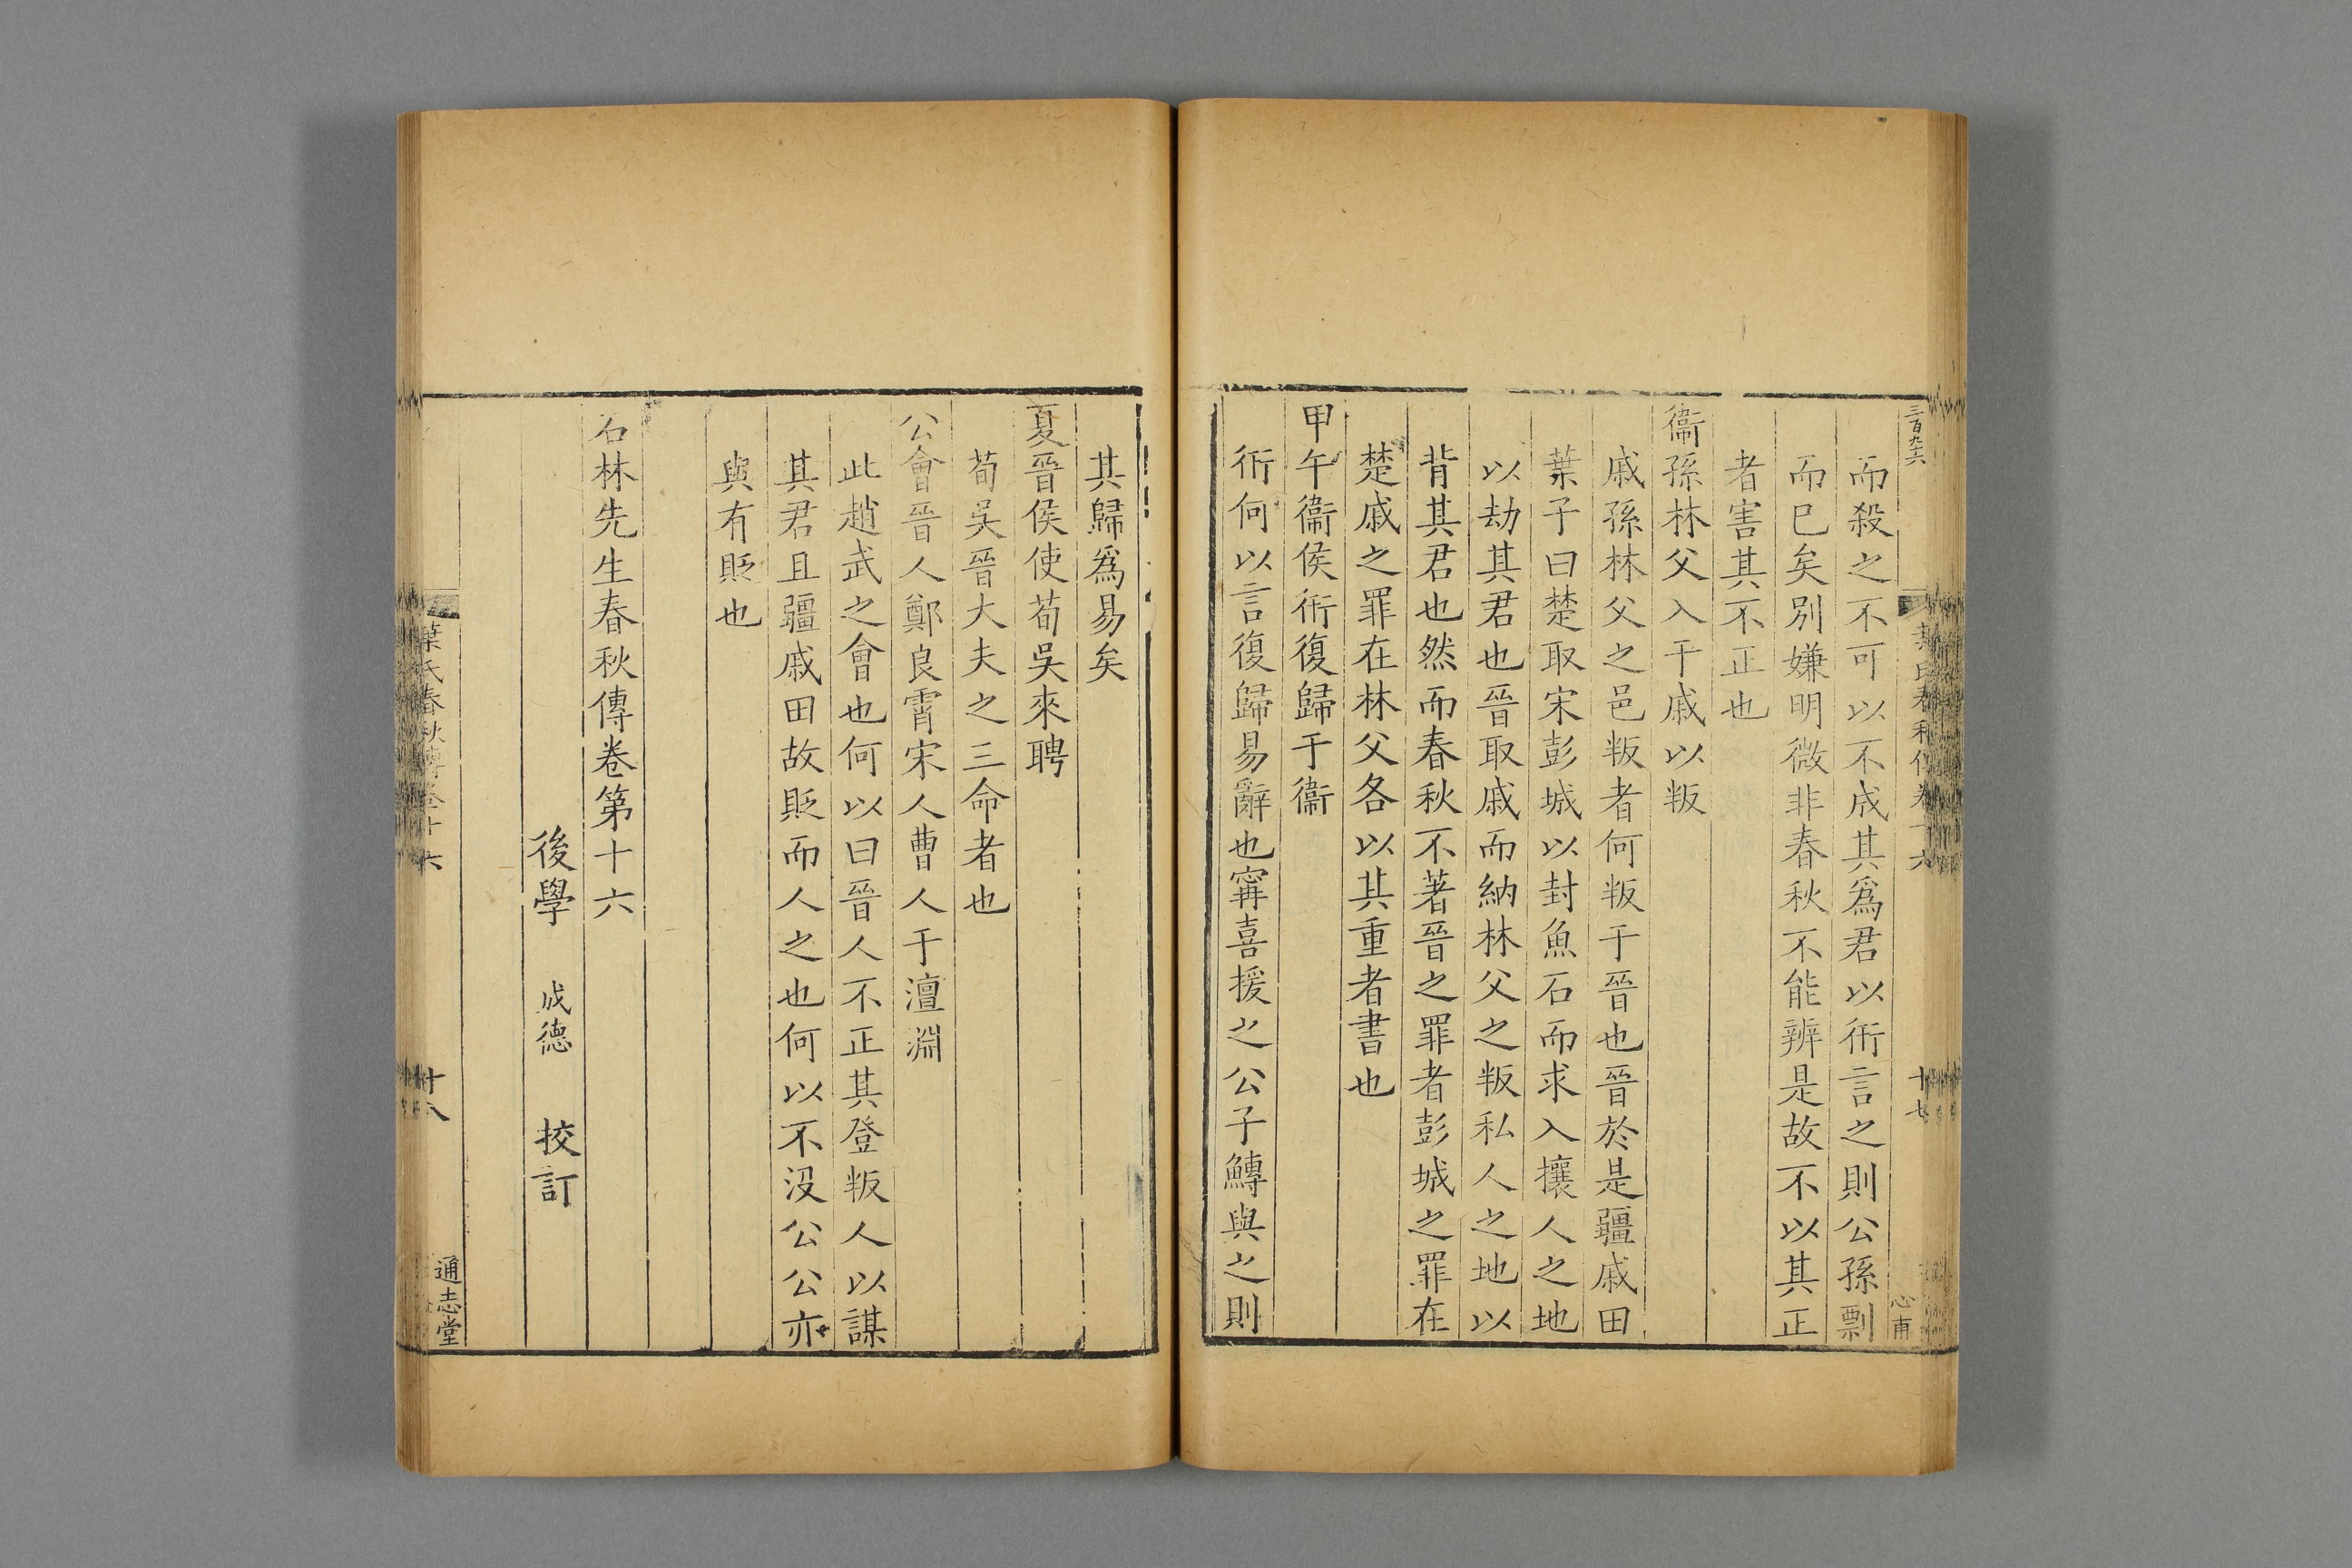 三百九六
葉氏春秋傳卷十六
十七
心甫
而殺之不可以不成其爲君以衎言之則公孫剽
而巳矣别嫌明微非春秋不能辨是故不以其正
者害其不正也
衞孫林父入于戚以叛
戚孫林父之邑叛者何叛于晉也晉於是疆戚田
葉子曰楚取宋彭城以封魚石而求入攘人之地
以劫其君也晉取戚而納林父之叛私人之地以
背其君也然而春秋不著晉之罪者彭城之罪在
楚戚之罪在林父各以其重者書也
甲午衞侯衎復歸于衞
衎何以言復歸易辭也甯喜援之公子鱄與之則
其歸爲易矣
夏晉侯使荀吳來聘
荀吳晉大夫之三命者也
公會晉人鄭良霄宋人曹人于澶淵
此趙武之會也何以曰晉人不正其登叛人以謀
其君且疆戚田故貶而人之也何以不沒公公亦
與有貶也
石林先生春秋傳卷第十六
後學 成德 校訂
葉氏春秋傳卷十六
十八
通志堂